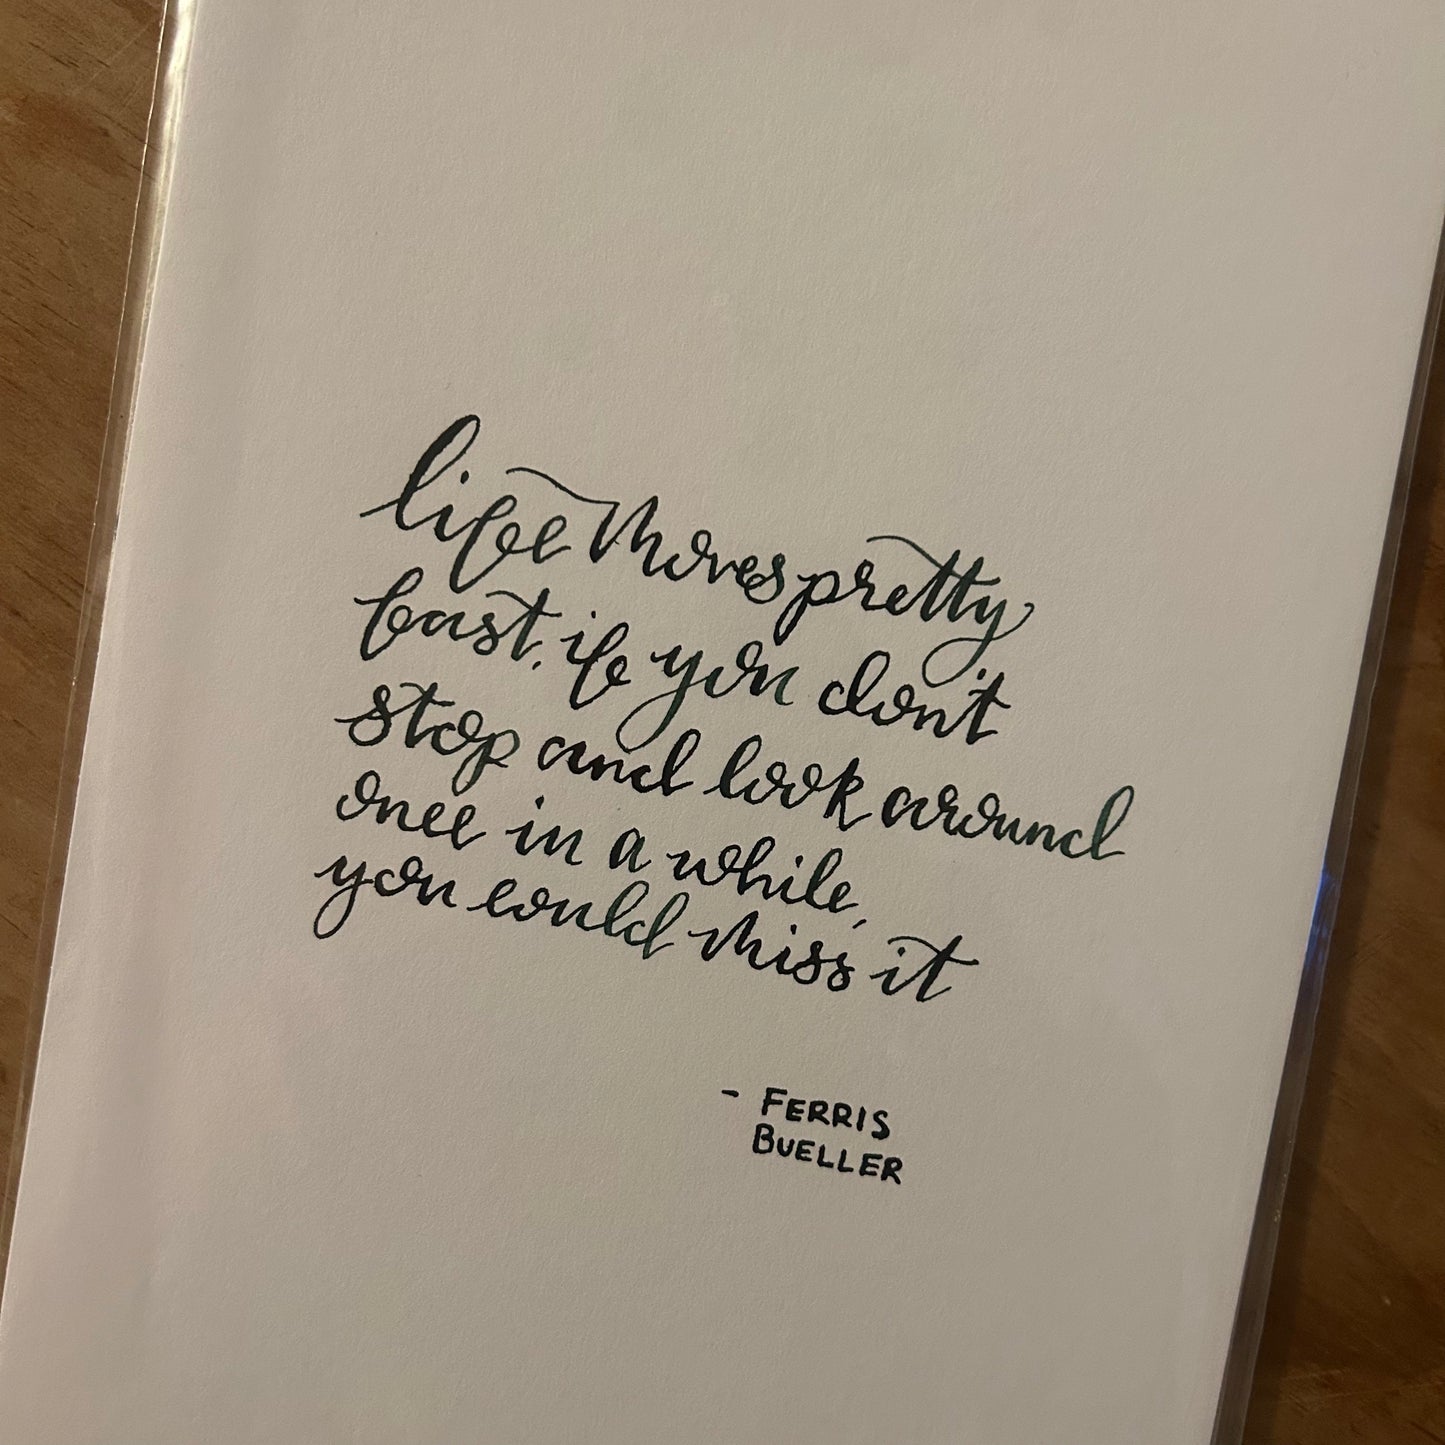 life moves pretty
fast, if you don't
stop and look around
once in a while,
you could miss it
- FERRIS
BUELLER